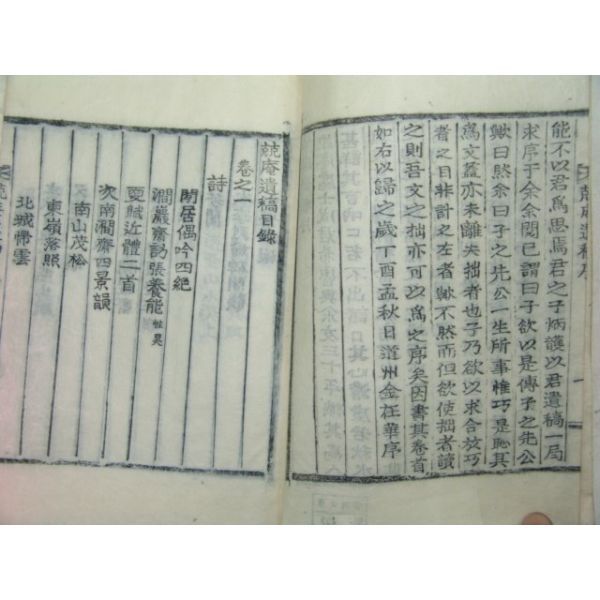 能不以君爲思焉君之子炳護以君遺稿一局
求序于余余閱已謂曰子欲以是傳子之先公
歟曰然余曰子之先公一生所事惟巧是恥其
爲文蓋亦未離夫拙者也子乃欲以求合於巧
者之目非計之左者歟不然而但欲使拙者讀
之則吾文之拙亦可以爲之序矣因書其卷首
如右以歸之歲丁酉孟秋日道州金在華序
兢庵遺稿目錄
卷之一
詩
閒居偶吟四絶
澗巖齋訪張養能
要賦近體二首
次南澗齋四景韻
南山茂松
東嶺落照
北城帶雲